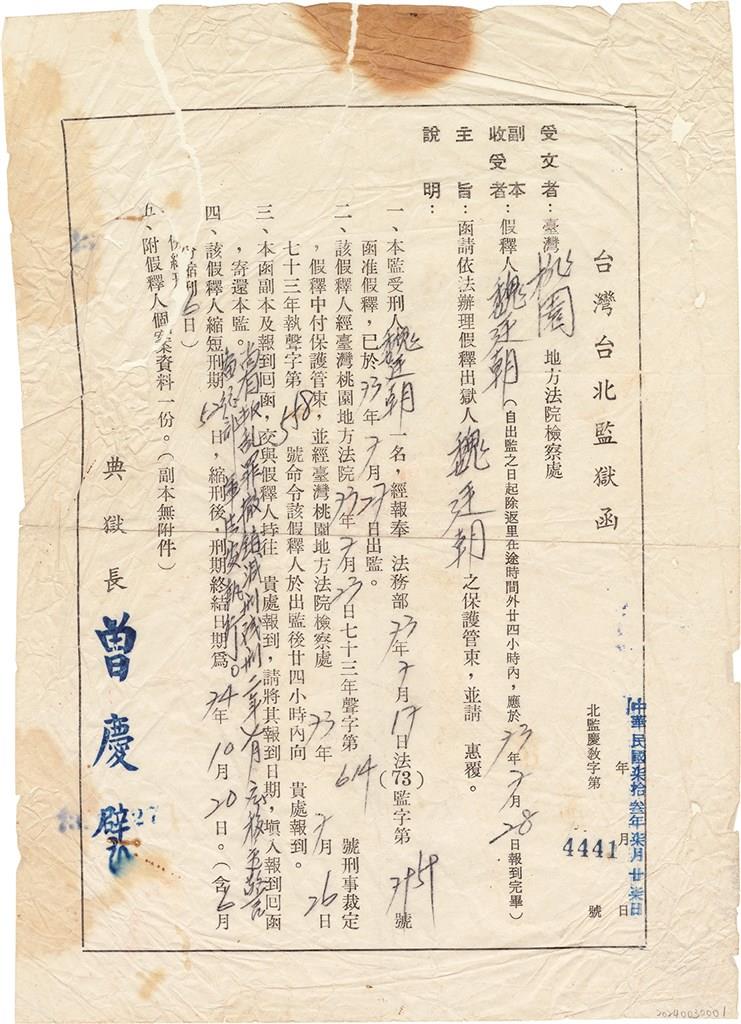 台灣台北監獄函
中華民國柒拾叁年柒月廿柒日
年 月 日
北監慶教字第 4441 號
受文者：臺灣桃園地方法院檢察處
副本收受者：假釋人魏廷朝（自出監之日起除返里在途時間外廿四小時內，應於73年7月28日報到完畢）
主旨：函請依法辦理假釋出獄人魏廷朝之保護管束，並請 惠覆。
說明：
一、本監受刑人魏廷朝一名，經報奉 法務部73年7月17日法(73)監字第 號
函准假釋，已於73年7月27日出監。
二、該假釋人經臺灣桃園地方法院73年7月23日七十三年聲字第614號刑事裁定
，假釋中付保護管束，並經臺灣桃園地方法院檢察處73年7月26日
七十三年執聲字第558號命令該假釋人於出監後廿四小時內向 貴處報到。
三、本函副本及報到回函，交與假釋人持往 貴處報到，請將其報到日期，填入報到回函
，寄還本監。
四、該假釋人縮短刑期52日，縮刑後，刑期終結日期為74年10月20日。（含6月
6日）
五、附假釋人個案資料一份。（副本無附件）
典獄長 曾慶
27
20240030001